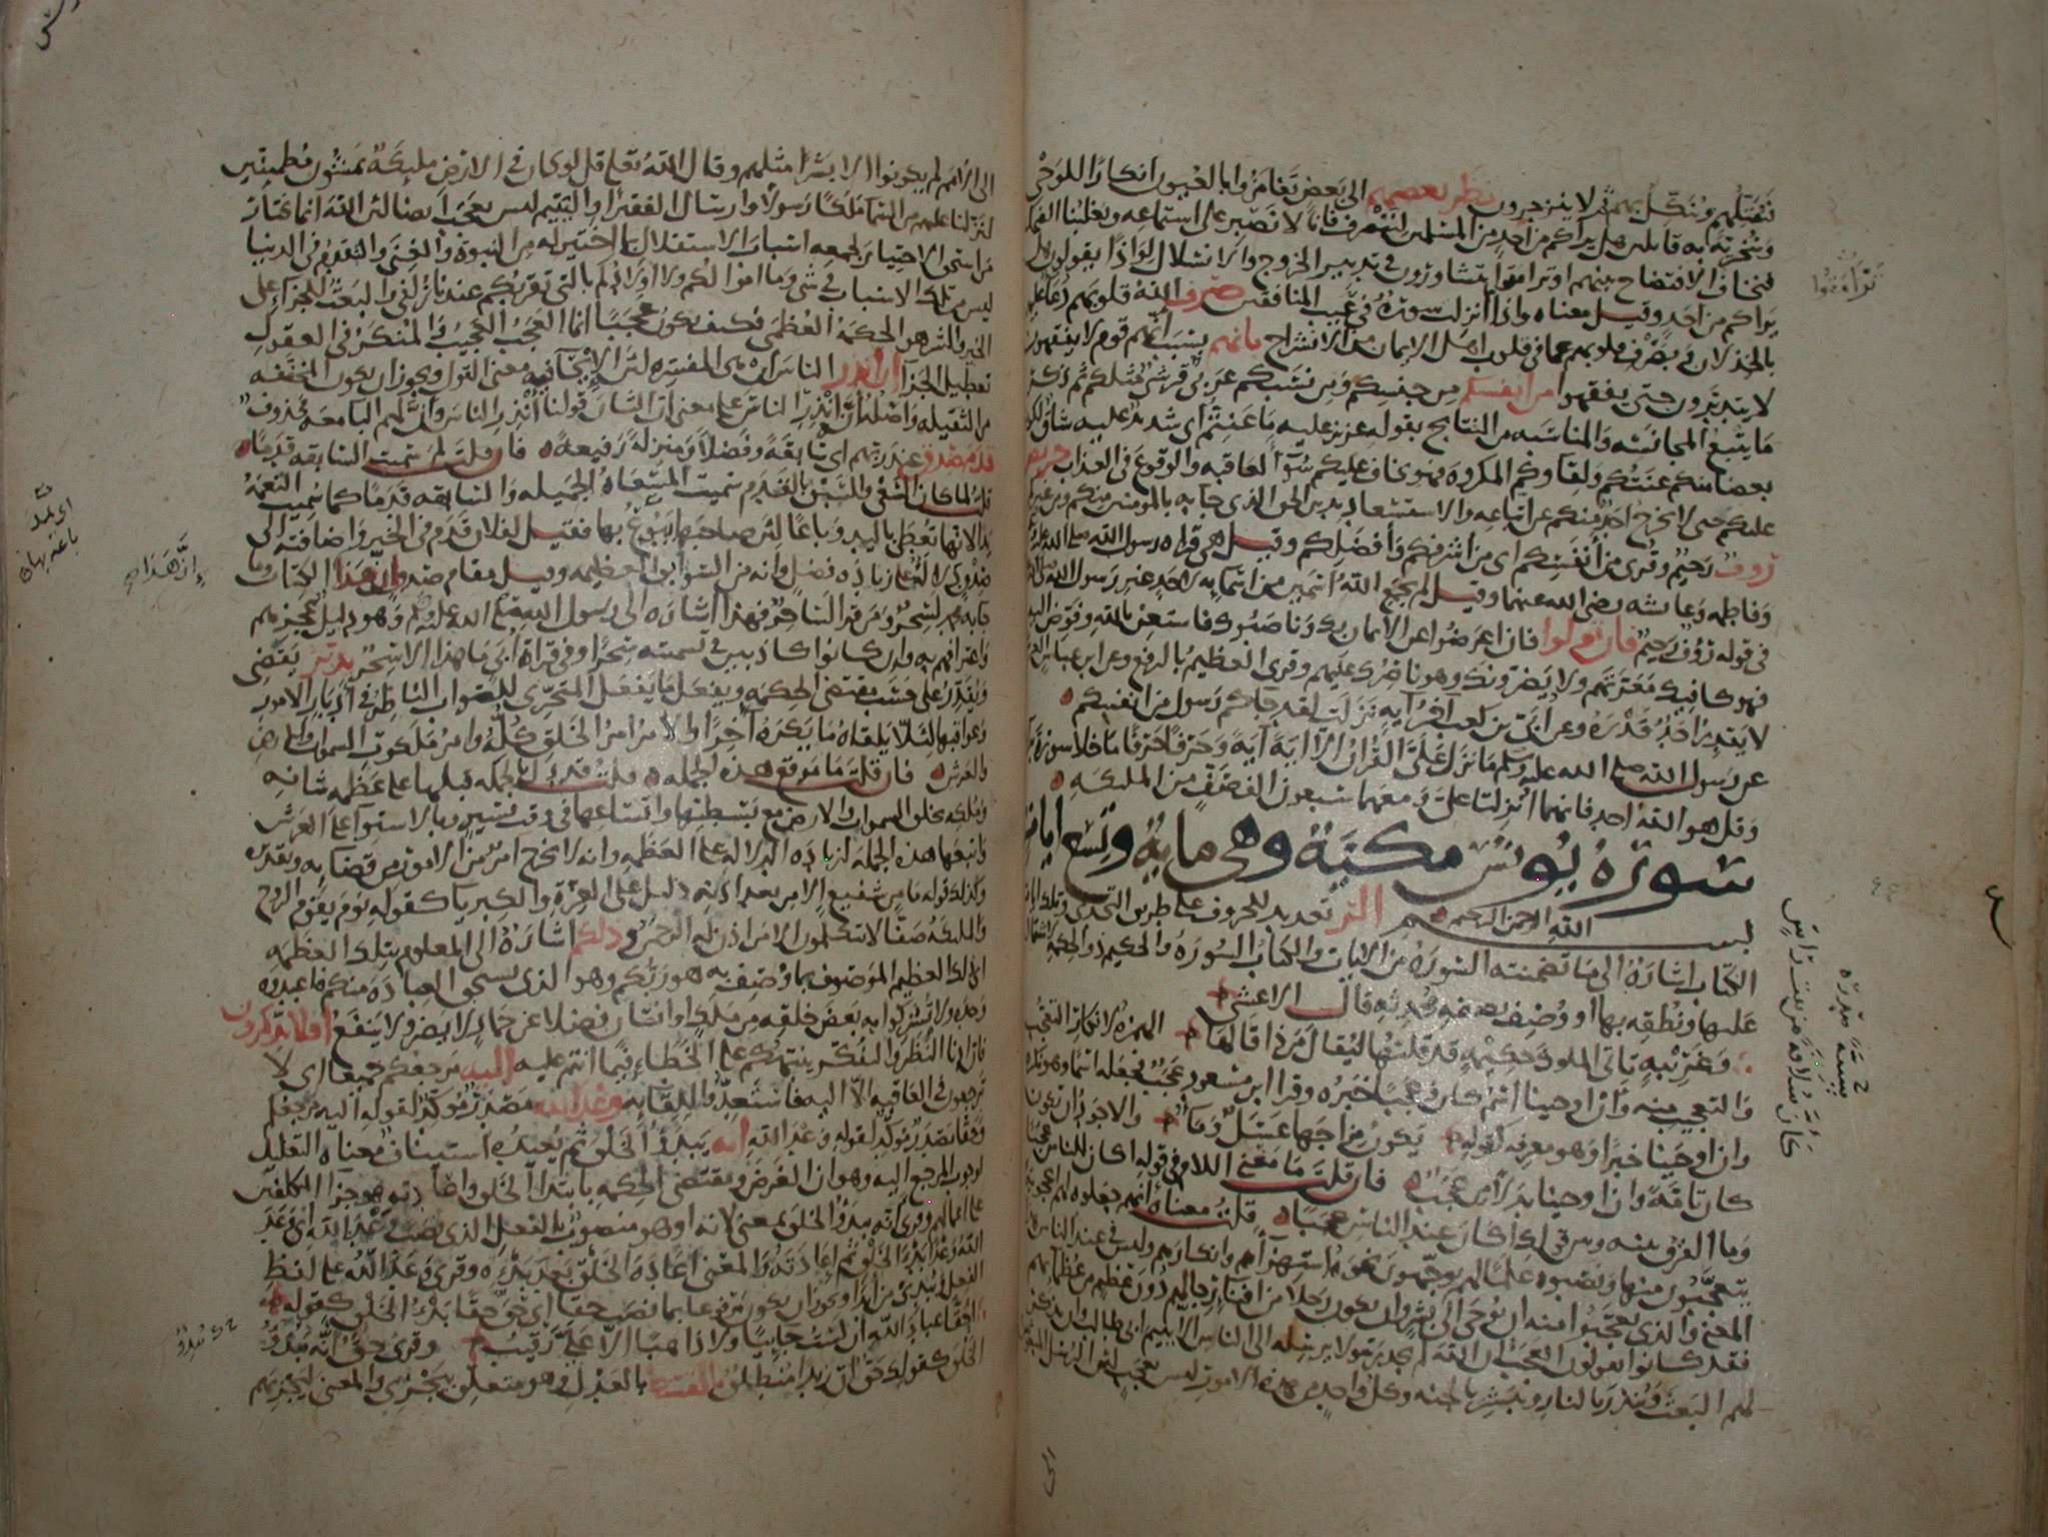 تقتلهم وتنكل بهم ثم لا ينزجرون نظر بعضهم الى بعض تغامزوا بالعيون انكارا للوحى
وسخرية به قايلين هل يراكم من احد من المسلمين لننصرف فانا لا نصبر على استماعه ويغلبنا الضحك
فنخاف الافتضاح بينهم او ترامقوا يتشاورون فى تدبير الخروج والانسلال لواذا يقولون هل
يراكم من احد وقيل معناه واذا ما انزلت سورة فى عيب المنافقين صرف الله قلوبهم دعا عليهم
بالخذلان وبصرف قلوبهم عما فى قلوب اهل الايمان من الانشراح بانهم بسبب انهم قوم لا يفقهون
لا يتدبرون حتى يفقهوا من انفسكم من جنسكم ومن نسبكم عربى قرشى مثلكم ثم ذكر
ما يتبع المجانسة والمناسبة من النتايج بقوله عزيز عليه ما عنتم اى شديد عليه شاق لكونه
بعضا منكم عنتكم ولقاوكم المكروه فهو يخاف عليكم سوء العاقبه والوقوع فى العذاب حريص
عليكم حتى لا يخرج احد منكم عن اتباعه والاستسعاد بدين الحق الذى جا به بالمومنين منكم ومن غيركم
روف رحيم وقرى من انفسكم اى من اشرفكم وافضلكم وقيل هى قراة رسول الله صلى الله عليه
وفاطمه وعايشه رضى الله عنهما وقيل لم يجمع الله اسمين من اسمايه لاحد غير رسول الله
فى قوله رؤف رحيم فان تولوا فان اعرضوا عن الايمان بك وناصبوك فاستعن بالله وفوض اليه
فهو كافيك معرتهم ولا يضرونك وهو ناصرك عليهم وقرى العظيم بالرفع وعن ابن عباس العرش
لا يقدر احد قدره وعن ابى بن كعب اخر اية نزلت لقد جاكم رسول من انفسكم
عن رسول الله صلى الله عليه وسلم ما نزل على القران الا اية اية وحرفا حرفا ما خلا سورة
وقل هو الله احد فانهما انزلتا على ومعهما سبعون الف صف من الملايكه
سورة يونس مكية وهى ماية وتسع ايات
بسم الله الرحمن الرحيم الر تعديد للحروف على طريق التحدى وتلك ايات
الكتاب اشارة الى ما تضمنته السورة من الايات والكتاب السورة والحكيم ذو الحكمة لاشتماله
عليها ونطقه بها او وصف بصفة محدثه قال الاعشى
وغريبة تاتى الملوك حكيمة قد قلتها ليقال من ذا قالها الهمزة لانكار التعجب
والتعجيب منه وان اوحينا اسم كان وعجبا خبره وقرا ابن مسعود عجب فجعله اسما وهو نكرة
وان اوحينا خبرا وهو معرفة كقوله يكون مزاجها عسل وما والاجود ان تكون
كان تامة وان اوحينا بدلا من عجب فان قلت ما معنى اللام فى قوله اكان للناس عجبا
وما الفرق بينه وبين قولك اكان عند الناس عجبا قلت معناه انهم جعلوه لهم اعجوبة
يتعجبون منها ونصبوه علما لهم يوجهون نحوه استهزاهم وانكارهم وليس فى عند الناس
المعنى والذى تعجبوا منه ان يوحى الى بشر وان يكون رجلا من افناء رجالهم دون عظيم من عظمايهم
فقد كانوا يقولون العجب ان الله لم يجد رسولا يرسله الى الناس الا يتيم ابى طالب وان يذكر
لهم البعث وينذر بالنار ويبشر بالجنه وكل واحد من هذه الامور ليس بعجب لان الرسل
الى الامم لم يكونوا الا بشرا مثلهم وقال الله تعالى قل لو كان فى الارض مليكة يمشون مطمينين
لنزلنا عليهم من السما ملكا رسولا وارسال الفقير او اليتيم ليس بعجب ايضا لان الله انما يختار
من استحق الاختيار لجمعه اسباب الاستقلال بما اختير له من النبوة والغنى والتقدم فى الدنيا
ليس من تلك الاسباب فى شى وما اموالكم ولا اولادكم بالتى تقربكم عندنا زلفى والبعث للجزا على
الخير والشر هو الحكمة العظمى فكيف يكون عجبا انما العجب العجيب والمنكر فى العقول
تعطيل الجزا ان انذر الناس ان هى المفسره لان الايحا فيه معنى القول ويجوز ان يكون المخففه
من الثقيله واصله انه انذر الناس على معنى ان الشان قولنا انذر الناس وان لهم البا معه محذوف
قدم صدق عند ربهم اى سابقة وفضلا ومنزلة رفيعه فان قلت لم سميت السابقه قدما
قلت لما كان السعى والسبق بالقدم سميت المسعاة الجميله والسابقه قدما كما سميت النعمة
يدا لانها تعطى باليد وباعا لان صاحبها يبوع بها فقيل لفلان قدم فى الخير واضافته الى
صدق دلالة على زيادة فضل وانه من السوابق العظيمه وقيل مقام صدق ان هذا الكتاب وما
جا به محمد لسحر ومن قرا لساحر فهذا اشاره الى رسول الله صلى الله عليه وسلم وهو دليل عجزهم
واعترافهم به وان كانوا كاذبين فى تسميته سحرا وفى قراة ابى ما هذا الا سحر يدبر يقضى
ويقدر على حسب مقتضى الحكمه ويفعل ما يفعل المتحرى للصواب الناظر فى ادبار الامور
وعواقبها لئلا يلقاه ما يكره اخرا والامر امر الخلق كله وامر ملكوت السموات والارض
والعرش فان قلت ما موقع هذه الجمله قلت قد دل بالجمله قبلها على عظمه شانه
وملكه بخلق السموات والارض مع بسطتها واتساعها فى وقت يسير وبالاستوا على العرش
واتبعها هذه الجملة لزيادة الدلاله على العظمه وانه لا يخرج امر من الامور من قضايه وتقديره
وكذلك قوله ما من شفيع الا من بعد اذنه دليل على العزة والكبريا كقوله يوم يقوم الروح
والمليكة صفا لا يتكلمون الا من اذن له الرحمن وذلكم اشارة الى المعلوم بتلك العظمه
اى ذلك العظيم الموصوف بما وصف به هو ربكم وهو الذى يستحق العباده منكم فاعبدوه
وحده ولا تشركوا به بعض خلقه من ملك او انسان فضلا عن جماد لا يضر ولا ينفع افلا تذكرون
فان ادنا النظر والتفكر ينبهكم على الخطا فيما انتم عليه اليه مرجعكم جميعا اى لا
ترجعون فى العاقبه الا اليه فاستعدوا للقايه وعد الله مصدر موكد لقوله اليه مرجعكم
وحقا مصدر موكد لقوله وعد الله انه يبدؤ الخلق ثم يعيده استيناف معناه التعليل
لوجوب المرجع اليه وهو ان الغرض ومقتضى الحكمه بابتدا الخلق واعادته هو جزا المكلفين
على اعمالهم وقرى انه يبدؤ الخلق بمعنى لانه او هو منصوب بالفعل الذى نصب وعد الله اى وعد
الله وعدا بدؤ الخلق ثم اعادته والمعنى اعادة الخلق بعد بدئه وقرى وعد الله على لفظ
الفعل ويبدئ من ابدا ويجوز ان يكون مرفوعا بما نصب حقا اى حق حقا بدؤ الخلق كقوله
احقا عباد الله ان لست جاييا ولا ذاهبا الا على رقيب وقرى حق انه يبدؤ
الخلق كقولك حق ان زيدا منطلق بالقسط بالعدل وهو متعلق بيجزى والمعنى ليجزيهم
ترامقوا
كأن سلافة من بيت راس
ان هذا